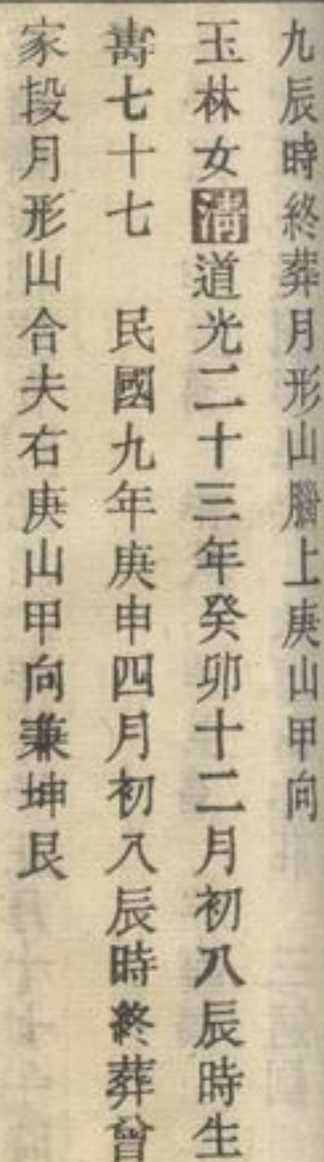 九辰時終葬月形山腦上庚山甲向
玉林女清道光二十三年癸卯十二月初八辰時生
壽七十七　民國九年庚申四月初八辰時終葬曾
家段月形山合夫右庚山甲向兼坤艮